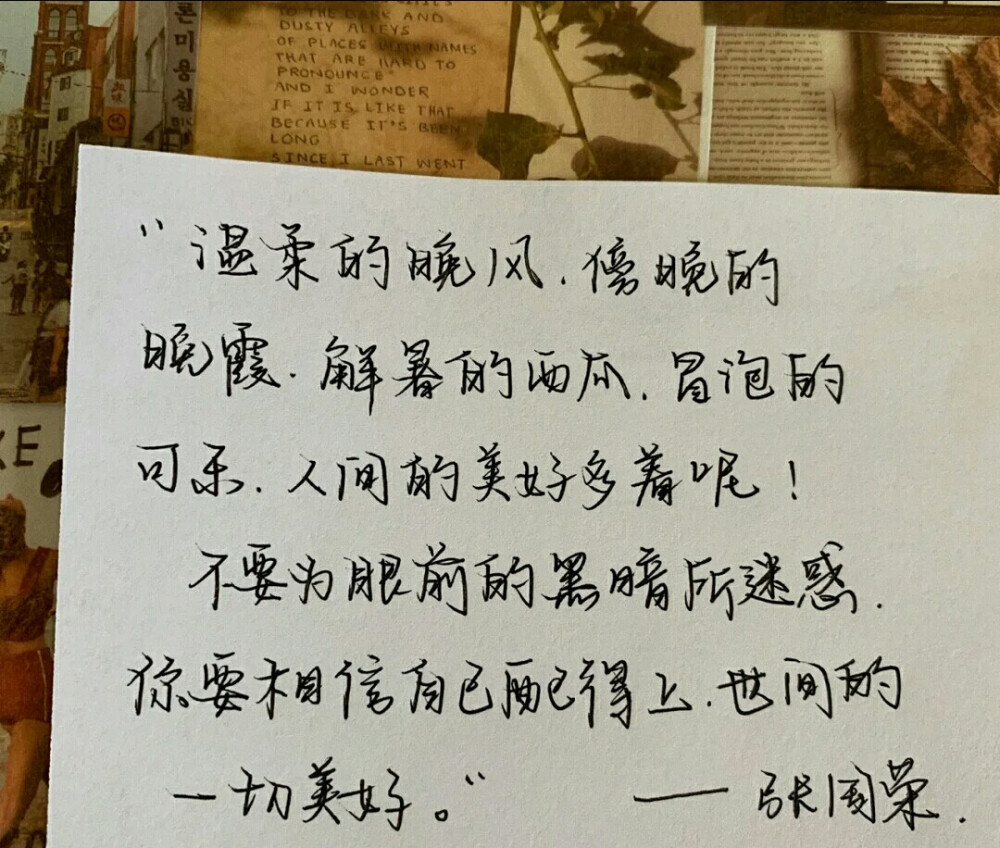 론미용실
TO THE DARK AND
DUSTY ALLEYS
OF PLACES WITH NAMES
THAT ARE HARD TO
PRONOUNCE
AND I WONDER
IF IT IS LIKE THAT
BECAUSE IT'S BEEN
LONG
SINCE I LAST WENT
KE
"温柔的晚风.傍晚的
晚霞.解暑的西瓜.冒泡的
可乐.人间的美好多着呢!
不要为眼前的黑暗所迷惑.
你要相信自己配得上.世间的
一切美好。"——张国荣.